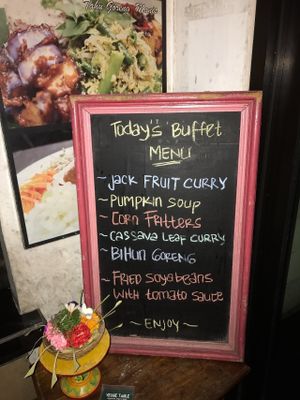 Tahu Goreng
Today's Buffet
MENU
~ Jack Fruit Curry
~ Pumpkin Soup
~ Corn Fritters
~ Cassava Leaf Curry
~ Bihun Goreng
~ Fried Soyabeans
With tomato sauce
~ ENJOY ~